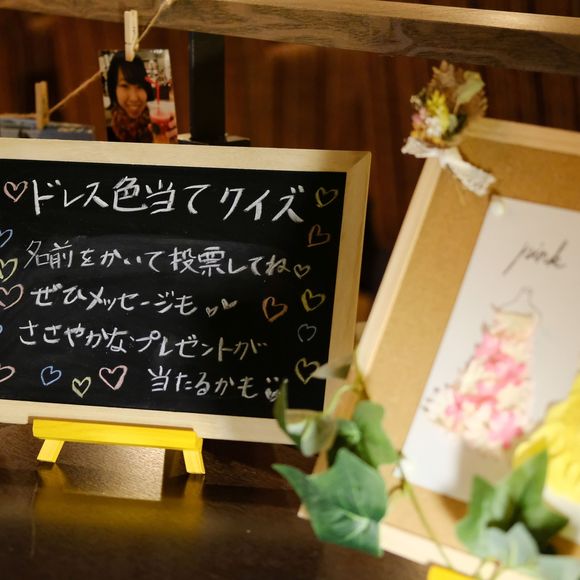 ドレス色当てクイズ
名前をかいて投票してね
ぜひメッセージも
ささやかなプレゼントが
当たるかも
pink